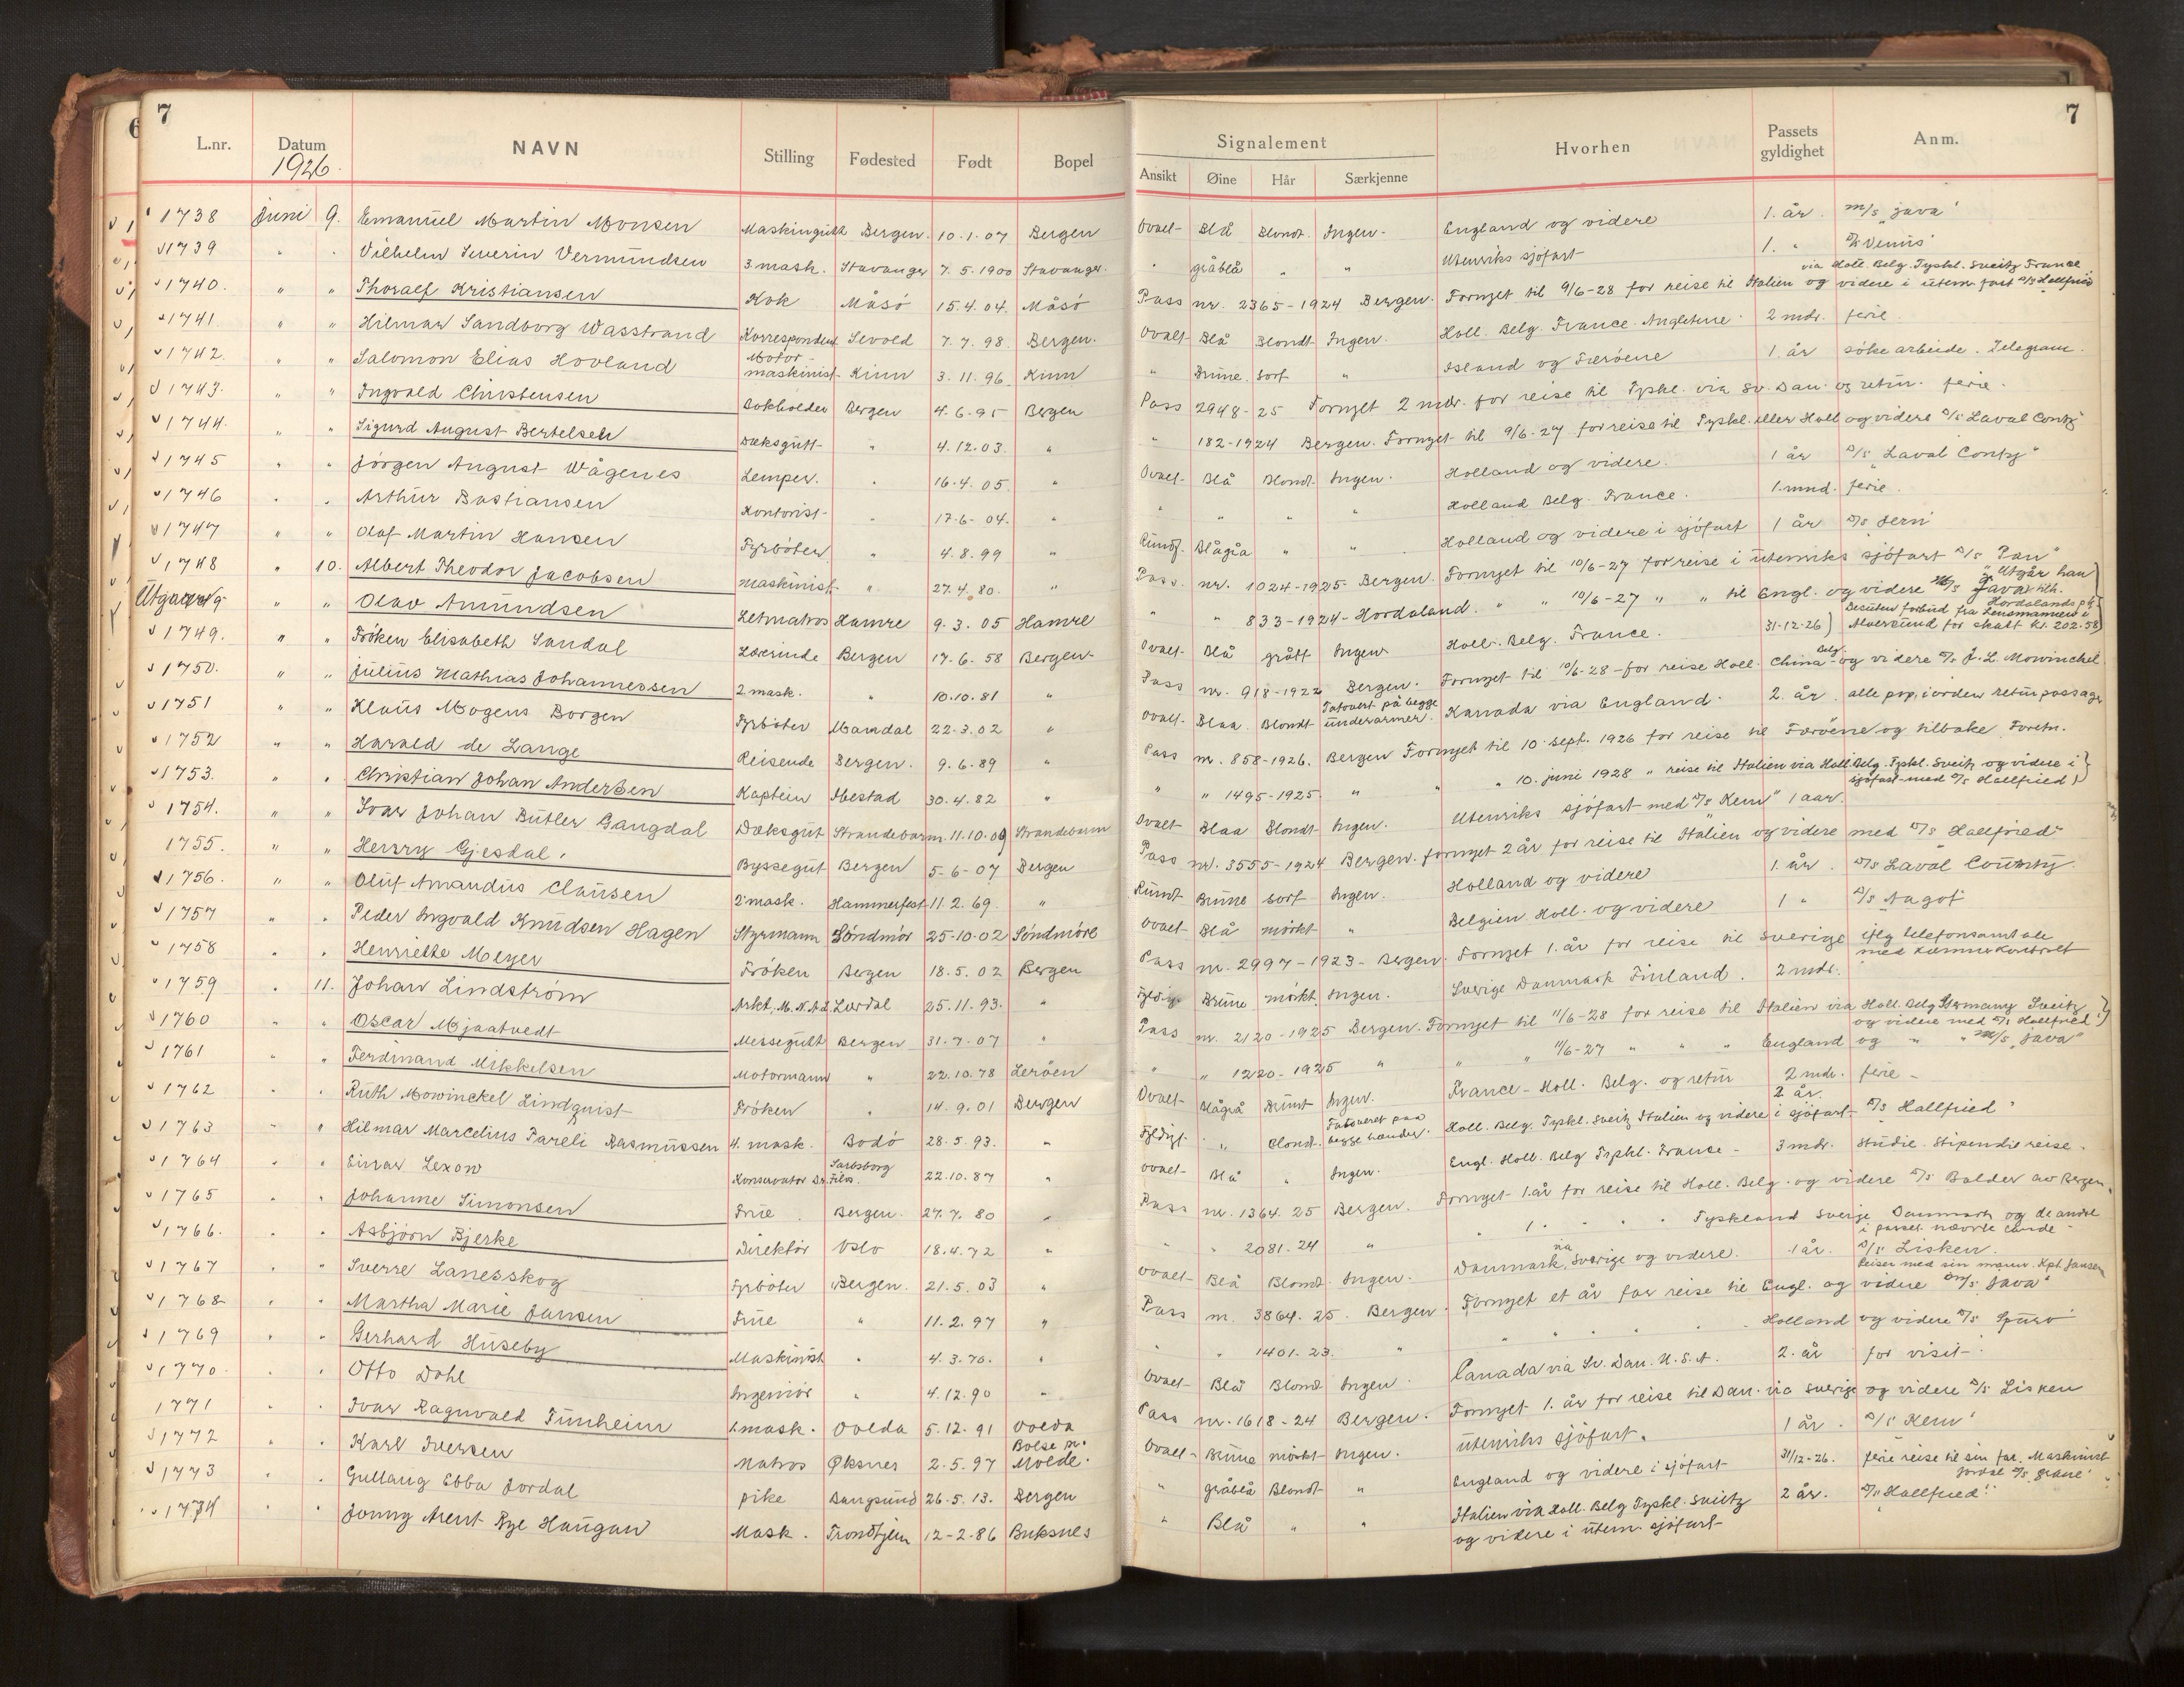 7
L.nr. Datum NAVN Stilling Fødested Født Bopel
1926.
Signalement Hvorhen Passets gyldighet Anm. 7
Ansikt Øine Hår Særkjenne
1738 Juni 9. Emanuel Martin Monsen Maskingutt Bergen. 10.1.07 Bergen Ovalt- Blå Blondt. Ingen- England og videre 1. år. m/s "Java"
1739 " " Vilhelm Severin Vermundsen 3 mask. Stavanger 7.5.1900 Stavanger. " gråblå " " Utenriks sjøfart 1. " D/S Venus"
1740. " " Thoralf Kristiansen Kok Måsö 15.4.04. Måsö Pass nr. 2365-1924 Bergen. Fornyet til 9/6-28 for reise til Italien og videre i utenr. fart D/S Hallfried
via Holl. Belg. Tyskl. Sveitz France
1741 " " Hilmar Sandborg Wasstrand Korrespondent Sevold 7.7.98. Bergen. Ovalt- Blå Blondt Ingen. Holl. Belg. France. Angleterre 2 mdr. ferie.
1742. " " Salomon Elias Hovland Motormaskinist Kinn 3.11.96. Kinn " Brune. Sort " Island og Færöene 1. år söke arbeide. Telegram.
1743. " " Ingvald Christensen Bokholder Bergen 4.6.95 Bergen Pass 2948-25 Fornyet 2 mdr. for reise til Tyskl. via Sv. Dan. og retur. ferie.
1744. " " Sigurd August Bertelsen Dæksgutt- " 4.12.03. " " 182-1924 Bergen. Fornyet til 9/6-27 for reise til Tyskl. eller Holl og videre D/S Laval County
1745 " " Jörgen August Wågenes Lemper. " 16.4.05. " Ovalt- Blå Blondt Ingen. Holland og videre. 1 år D/S "Laval County"
1746 " " Arthur Bastiansen Kontorist- " 17-6-04. " " " " " Holland Belg. France. 1. mnd. ferie.
1747 " " Olaf Martin Hansen Fyrböter " 4.8.99 " Rundt. Blågrå " " Holland og videre i sjöfart 1 år D/S Jern"
1748 " 10. Albert Theodor Jacobsen Maskinist- " 27.4.80. " Pass. nr. 1024-1925 Bergen. Fornyet til 10/6-27 for reise i utenriks sjöfart D/S "Pan"
Utgaar " " Olav Amundsen Letmatros Hamre 9.3.05 Hamre " " 833-1924-Hordaland. " " 10/6-27 " " til Engl. og videre M/S Java
1749. " " Fröken Elisabeth Sandal Lærerinde Bergen 17.6.58 Bergen- Ovalt- Blå grått Ingen Holl. Belg. France. 31-12-26
Utgår han
Besuten forbud fra Lensmannen i Alversund for skatt kr. 202.58
1750. " " Julius Mathias Johannessen 2 mask. " 10.10.81 " Pass nr. 918-1922 Bergen. Fornyet til 10/6-28-for reise Holl. Belg. China og videre D/S J. L. Mowinckel
1751 " " Klaus Mogens Borgen Fyrböter Mandal 22.3.02 " Ovalt- Blaa Blondt Tatovert på begge underarmer. Kanada via England. 2. år. alle pap. i orden returpassage
1752 " " Harald de Lange Reisende Bergen. 9.6.89 " Pass nr. 858-1926. Bergen Fornyet til 10. sept. 1926 for reise til Færöerne og tilbake Foretn.
1753. " " Christian Johan Andersen Kaptein Ibestad 30.4.82 " " " 1495-1925. " " " 10. juni 1928 " reise til Italien via Holl. Belg. Tyskl. Sveitz og videre i sjöfart med D/S Hallfried)
1754. " " Ivar Johan Butler Gangdal Dæksgut Strandebarm. 11.10.09 Strandebarm Ovalt Blaa Blondt Ingen. Utenriks sjöfart med D/S "Kem" 1 aar.
1755. " " Henry Gjesdal. Byssegut Bergen 5-6-07 Bergen Pass nr. 3555-1924 Bergen. fornyet 2 år for reise til Italien og videre med D/S Hallfried"
1756. " " Oluf Amandus Clausen 2'mask. Hammerfest 11.2.69. " Rundt Brune sort Ingen. Holland og videre 1. år. D/S Laval County
1757 " " Peder Ingvald Knudsen Hagen Styrmann Söndmör 25-10-02 Söndmöre Ovalt Blå mörkt " Belgien. Holl. og videre 1 " D/S Nagot
1758 " " Henriette Meyer Fröken Bergen 18.5.02 Bergen Pass nr. 2997-1923-Bergen. Fornyet 1. år for reise til Sverige iflg telefonsamtale
1759 " 11. Johan Lindström Arkt. M.N.A.L. Lærdal 25.11.93. " Fyldig Brune mörkt. Ingen. Sverige Danmark Finland. 2 mdr.
1760 " " Oscar Mjaatvedt Messegutt Bergen 31.7.07 " Pass nr. 2120-1925 Bergen. Fornyet til 11/6-28 for reise til Italien via Holl. Belg Germany Sveitz og videre med D/S Hallfried)
1761 " " Ferdinand Mikkelsen Motormann " 22.10.78 Leröen " " 1220-1925 " " " 11/6-27 " " " England og " " M/S "Java"
1762 " " Ruth Mowinckel Lindquist Fröken " 14.9.01 Bergen Ovalt- Blågrå Brunt Ingen. France-Holl. Belg. og retur 2 mdr. ferie-
1763 " " Hilmar Marcelius Pareli Rasmussen 4. mask. Bodö 28.5.93. " Fyldigt. " Blondt. Tatoveret paa begge hænder. Holl. Belg. Tyskl. Sveitz Italien og videre i sjöfart- 2 år. D/S Hallfried"
1764 " " Einar Lexow Konservator Dr. Filos. Sarbsborg 22.10.87 " Ovalt- Blå " Ingen. Engl. Holl. Belg Tyskl. France- 3 mdr. studie-stipendie reise.
1765 " " Johanne Simonsen Frue. Bergen. 27.7.80 " Pass nr. 1364.25 Bergen. Fornyet 1. år for reise til Holl. Belg. og videre D/S Balder av Bergen.
1766. " " Asbjörn Bjerke Direktör Oslo 18.4.72 " " " 2081.24 " " 1 " " " Tyskland Sverige Danmark og de andre i passet nævnte lande-
1767 " " Sverre Lanesskog Fyrböter Bergen. 21.5.03 " Ovalt- Blå Blondt. Ingen. Danmark via Sverige og videre. 1 år. D/S Lisken.
1768 " " Martha Marie Jansen Frue " 11.2.97 " Pass nr. 3864.25. Bergen. Fornyet et år for reise til Engl. og videre m/s Java"
Reiser med sin mann. Kpt. Jansen
1769 " " Gerhard Huseby Maskinist " 4.3.70. " " " 1401.23. " " " " " Holland og videre D/S Spurv
1770. " " Otto Dahl Ingeniör " 4.12.90 " Ovalt- Blå Blondt Ingen. Canada via Sv. Dan. U.S.A. 2. år for visit-
1771 " " Ivar Ragnvald Tunheim 1. mask. Volda 5.12.91 Volda Pass nr. 1618-24 Bergen. Fornyet 1. år for reise til Dan. via Sverige og videre D/S Lisken
1772 " " Karl Iversen Matros Øksnes 2.5.97 Bolsø pr. Molde. Ovalt- Brune mörkt Ingen. Utenriks sjöfart. 1 år. D/S Kem"
1773 " " Gullaug Ebba Jordal pike Bangsund 26.5.13. Bergen " gråblå Blondt " England og videre i sjöfart 31/12-26. ferie reise til sin far. Maskinist Jordal
1774 " " Jonny Arent Bye Haugan Mask. Trondhjem 12-2-86 Buksnes " Blå " " Italien via Holl. Belg Tyskl. Sveitz og videre i utenr. sjöfart- 2 år. D/S Hallfried"